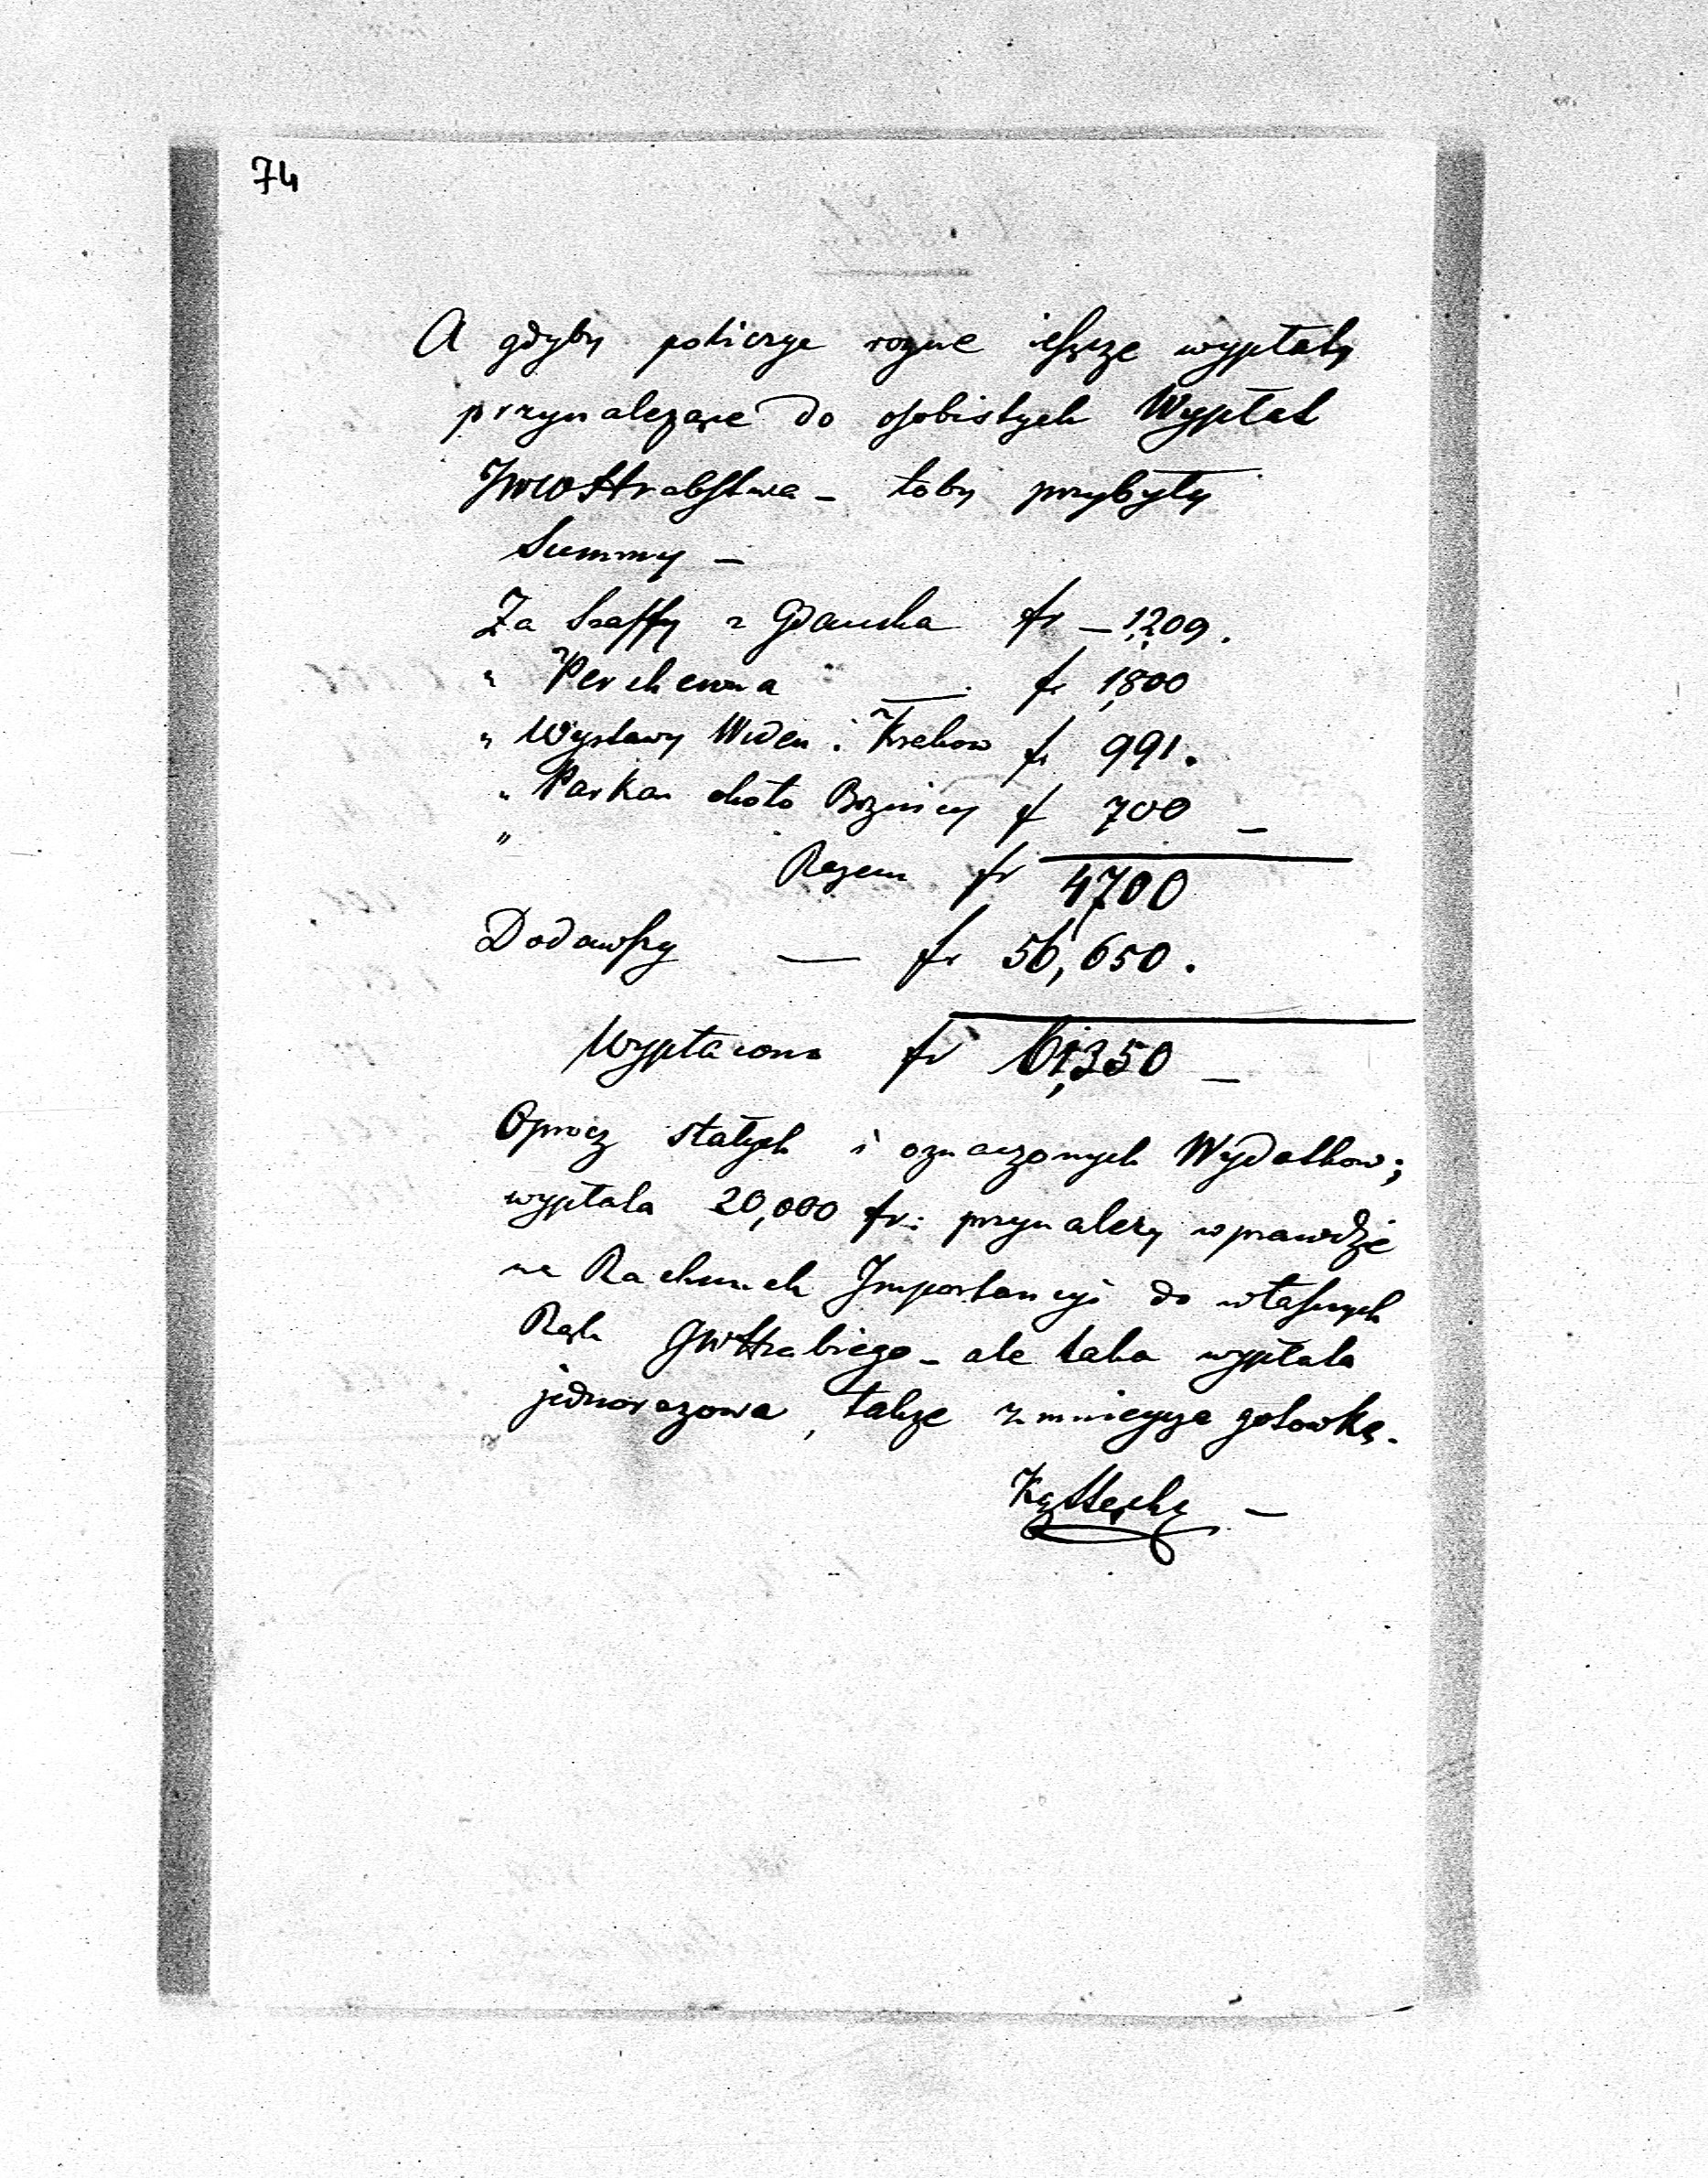 74
A gdyby policzyc rozne ieszcze wypłaty
przynalezące do osobistych Wypłat
JWW Hrabstwa - toby przybyły
Summy -
Za Szaffy z Gdanska fr - 1,209.
" Percherona — fr 1,800
" Wystawy Widen i Krakow fr 991.
" Parkan około Boznicy fr 700 -
"
Razem fr 4700
Dodawszy — fr 56,650.
Wypłacono fr 61,350 -
Oprocz stałych i oznaczonych Wydatkow;
wypłata 20,000 fr: przynalezy wprawdzie
na Rachunek Importancyi do własnych
Rąk JW Hrabiego - ale taka wypłata
jednorazowa, takze zmnieysza gotowkę.